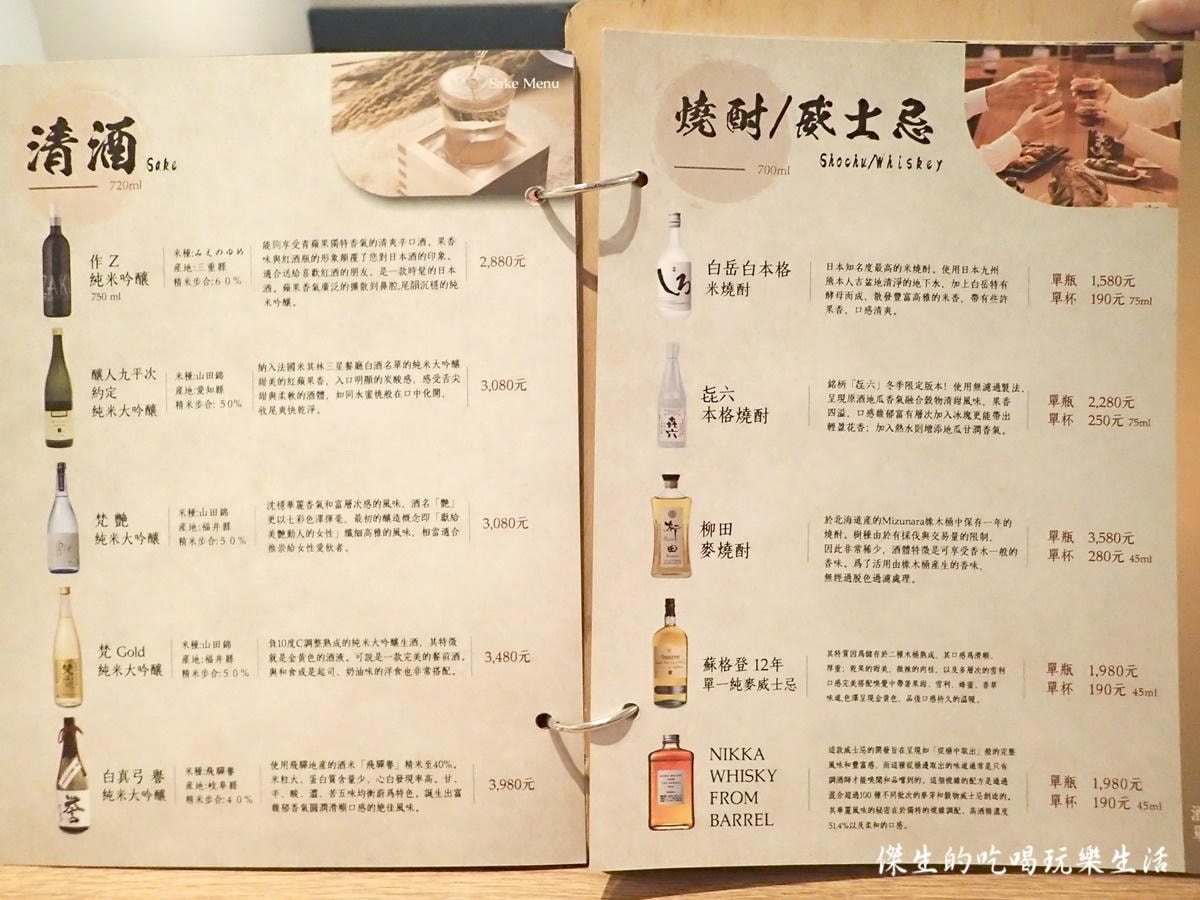 Sake Menu
清酒 Sake
720ml
作 Z
純米吟釀
750 ml
米種:みえのゆめ
産地:三重縣
精米步合:60%
能夠享受青蘋果獨特香氣的清爽辛口酒。果香
味與紅酒瓶的形象顛覆了您對日本酒的印象。
適合送給喜歡紅酒的朋友。是一款時髦的日本
酒。蘋果香氣廣泛的擴散到鼻腔,尾韻沉穩的純
米吟釀。
2,880元
釀人九平次
約定
純米大吟釀
米種:山田錦
産地:愛知縣
精米步合: 50%
納入法國米其林三星餐廳白酒名單的純米大吟釀
甜美的紅蘋果香，入口明顯的炭酸感、感受舌尖
甜與柔軟的酒體，如同水蜜桃般在口中化開，
收尾爽快乾淨。
3,080元
梵 艷
純米大吟釀
米種:山田錦
産地:福井縣
精米步合:50%
沈穩華麗香氣和富層次感的風味、酒名「艷」
更以七彩色澤揮毫、最初的釀造概念即「獻給
美艷動人的女性」纖細高雅的風味，相當適合
推崇給女性愛飲者。
3,080元
梵 Gold
純米大吟釀
米種:山田錦
産地:福井縣
精米步合:50%
負10度C調整熟成的純米大吟釀生酒，其特徵
就是金黃色的酒液。可說是一款完美的餐前酒。
與和食或是起司、奶油味的洋食也非常搭配。
3,480元
白真弓 譽
純米大吟釀
米種:飛驒譽
産地:岐阜縣
精米步合:40%
使用飛驒地産的酒米「飛驒譽」精米至40%。
米粒大、蛋白質含量少、心白發現率高。甘、
辛、酸、澀、苦五味均衡蔚爲特色。誕生出富
馥郁香氣圓潤滑順口感的絶佳風味。
3,980元
燒酎/威士忌
Shochu/Whiskey
700ml
白岳白本格
米燒酎
日本知名度最高的米燒酎。使用日本九州
熊本人吉盆地清淨的地下水，加上白岳特有
酵母而成，散發豐富高雅的米香，帶有些許
果香，口感清爽。
單瓶 1,580元
單杯 190元 75ml
㐂六
本格燒酎
銘柄「㐂六」冬季限定版本！使用無濾過製法，
呈現原酒地瓜香氣融合穀物清甜風味，果香
四溢，口感馥郁富有層次加入冰塊更能帶出
輕盈花香；加入熱水則增添地瓜甘潤香氣。
單瓶 2,280元
單杯 250元 75ml
柳田
麥燒酎
於北海道産的Mizunara橡木桶中保存一年的
燒酎。樹種由於有採伐與交易量的限制，
因此非常稀少，酒體特徵是可享受香木一般的
香味。爲了活用由橡木桶産生的香味，
無經過脫色過濾處理。
單瓶 3,580元
單杯 280元 45ml
蘇格登 12年
單一純麥威士忌
其特質因爲儲存於二種木桶熟成，其口感爲滑順、
厚重；乾果的甜美，微辣的肉桂，以及多層次的雪利
口感完美搭配嗅覺中帶著果甜、雪利、蜂蜜、香草
味道,色澤呈現金黃色、品後口感持久的溫暖。
單瓶 1,980元
單杯 190元 45ml
NIKKA
WHISKY
FROM
BARREL
這款威士忌的開發旨在呈現如「從桶中取出」般的完整
風味和豐富感，而這種從桶邊取出的味道通常是只有
調酒師才能嗅聞和品嚐到的。這個複雜的配方是通過
混合超過100 種不同批次的麥芽和穀物威士忌創造的。
其華麗風味的秘密在於獨特的複雜調配、高酒精濃度
51.4%以及柔和的口感。
單瓶 1,980元
單杯 190元 45ml
傑生的吃喝玩樂生活